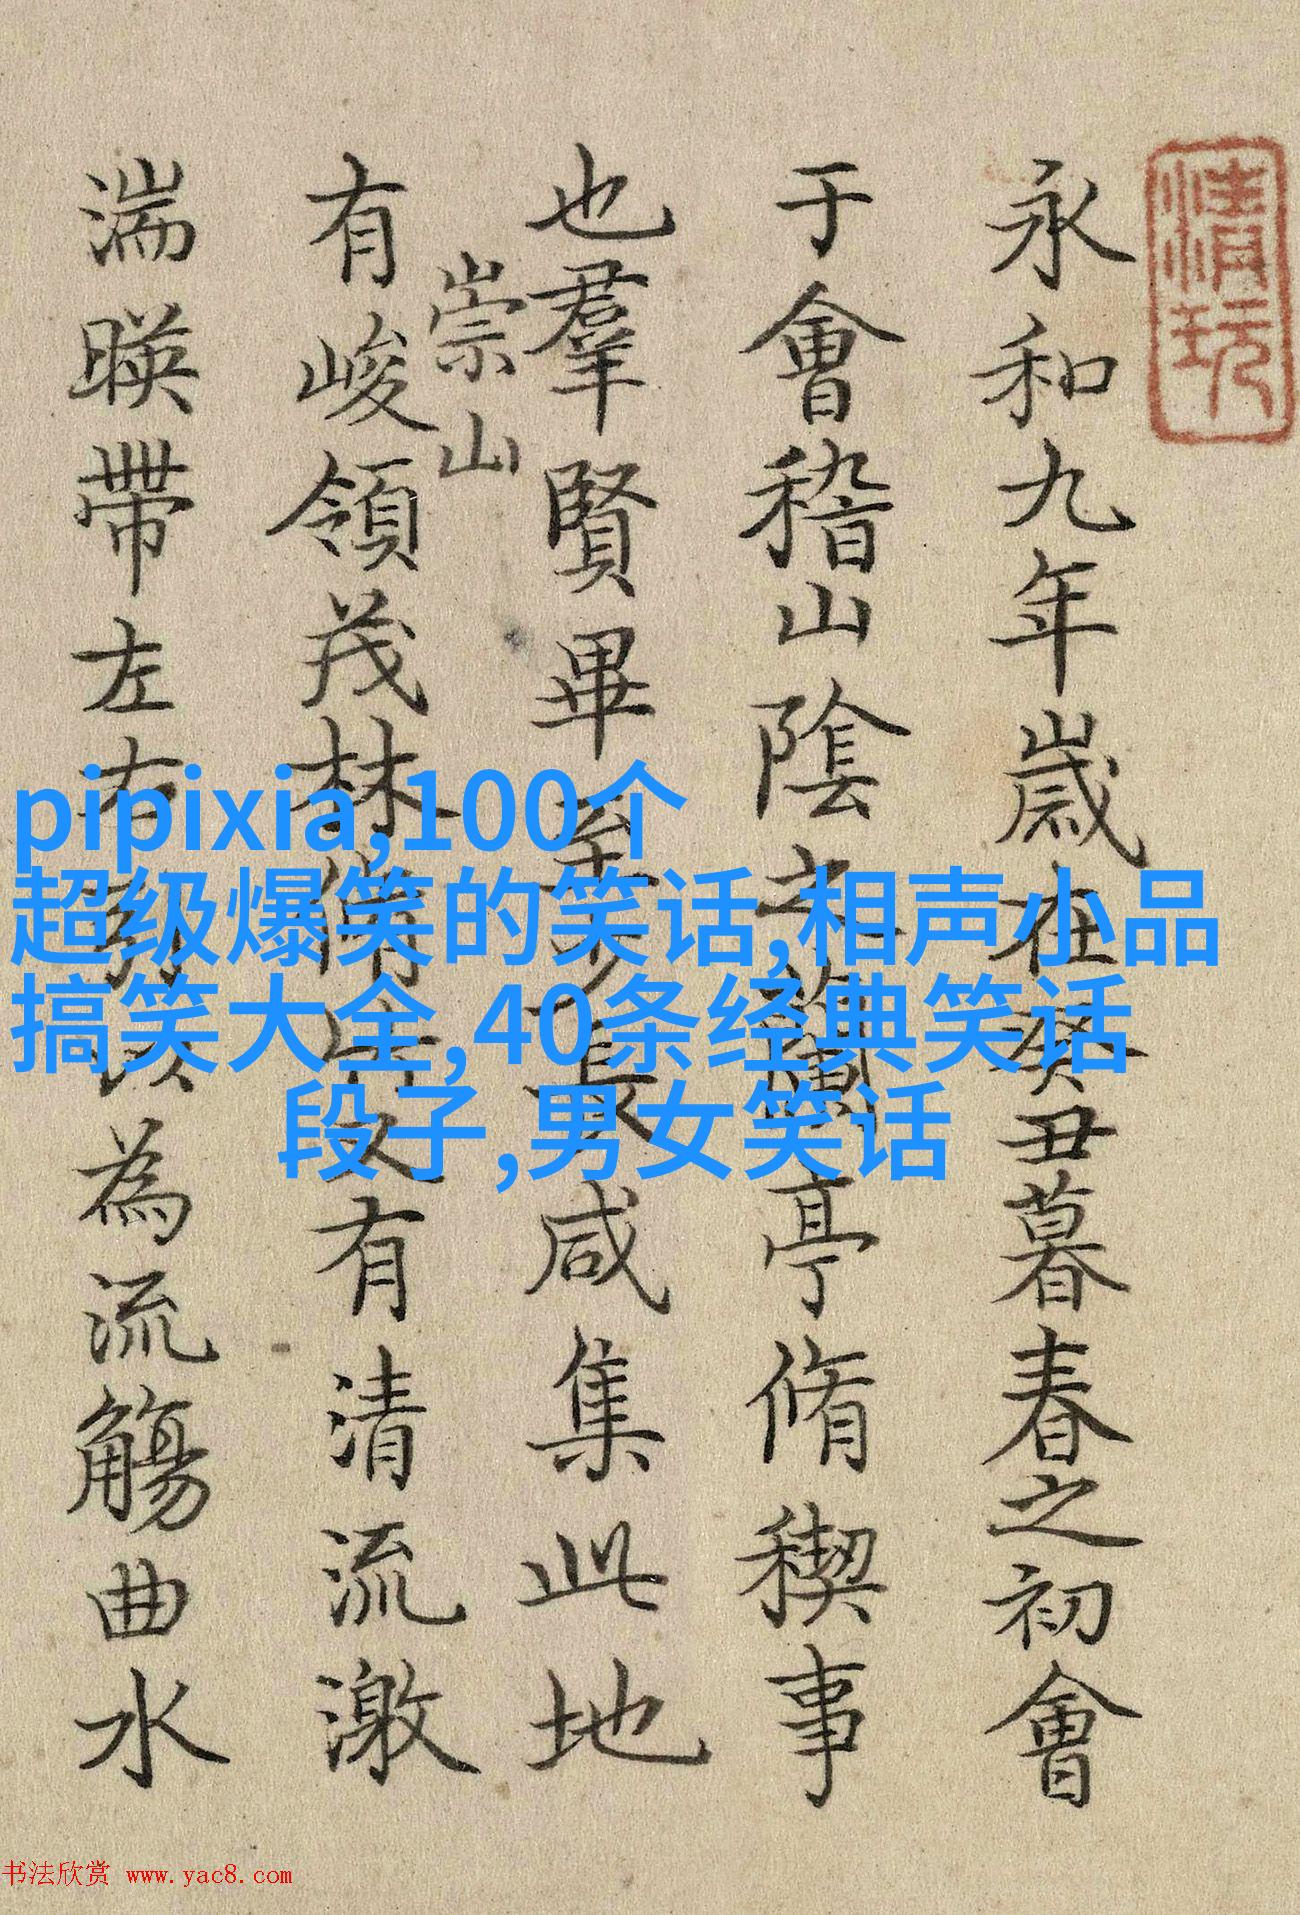 清玩
永和九年歲在癸丑暮春之初會
于會稽山陰之蘭亭脩稧事
也羣賢畢至少長咸集此地
崇山
有峻領茂林脩竹又有清流激
湍暎帶左右引以為流觴曲水
pipixia,100个
超级爆笑的笑话,相声小品
搞笑大全,40条经典笑话
段子,男女笑话
书法欣赏 www.yac8.com